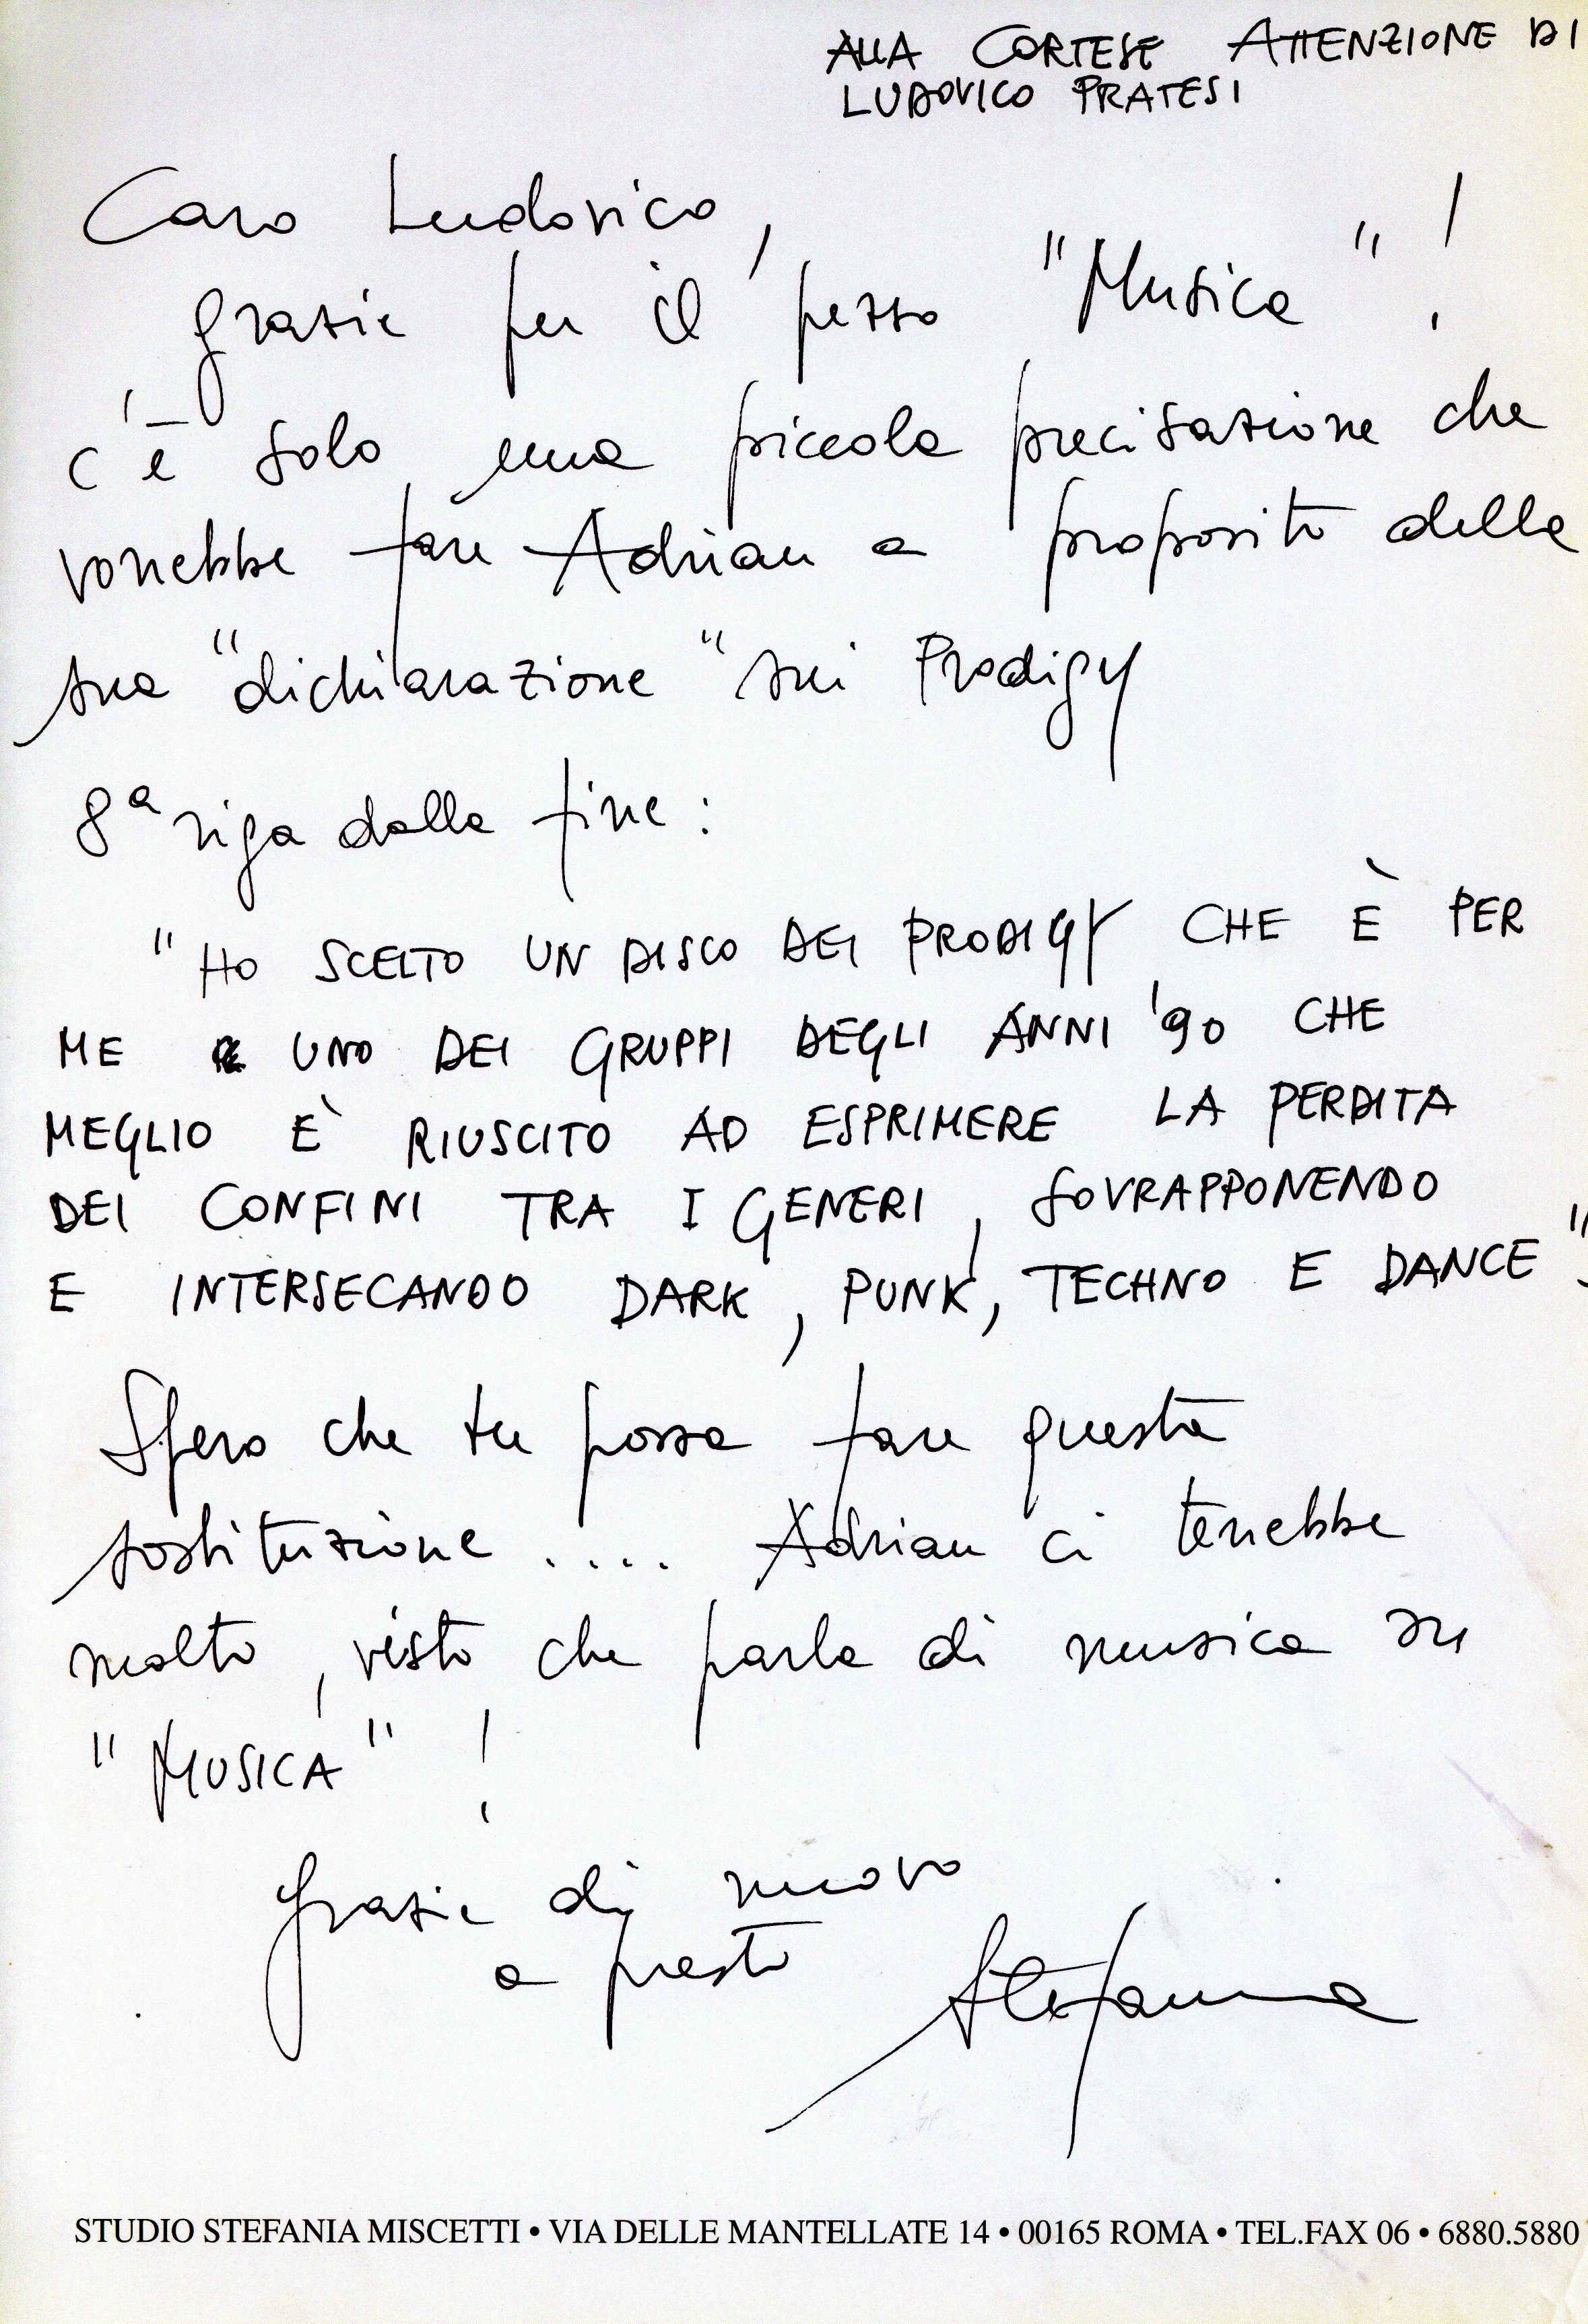 ALLA CORTESE ATTENZIONE DI
LUDOVICO PRATESI
Caro Ludovico,
grazie per il pezzo "Musica"!
c'è solo una piccola precisazione che
vorrebbe fare Adrian a proposito della
sua "dichiarazione" sui Prodigy
8ª riga dalla fine:
"HO SCELTO UN DISCO DEI PRODIGY CHE È PER
ME UNO DEI GRUPPI DEGLI ANNI '90 CHE
MEGLIO È RIUSCITO AD ESPRIMERE LA PERDITA
DEI CONFINI TRA I GENERI, SOVRAPPONENDO
E INTERSECANDO DARK, PUNK, TECHNO E DANCE".
Spero che tu possa fare questa
sostituzione .... Adrian ci terrebbe
molto, visto che parla di musica su
"MUSICA"!
Grazie di nuovo
a presto
Stefania
STUDIO STEFANIA MISCETTI • VIA DELLE MANTELLATE 14 • 00165 ROMA • TEL.FAX 06 • 6880.5880